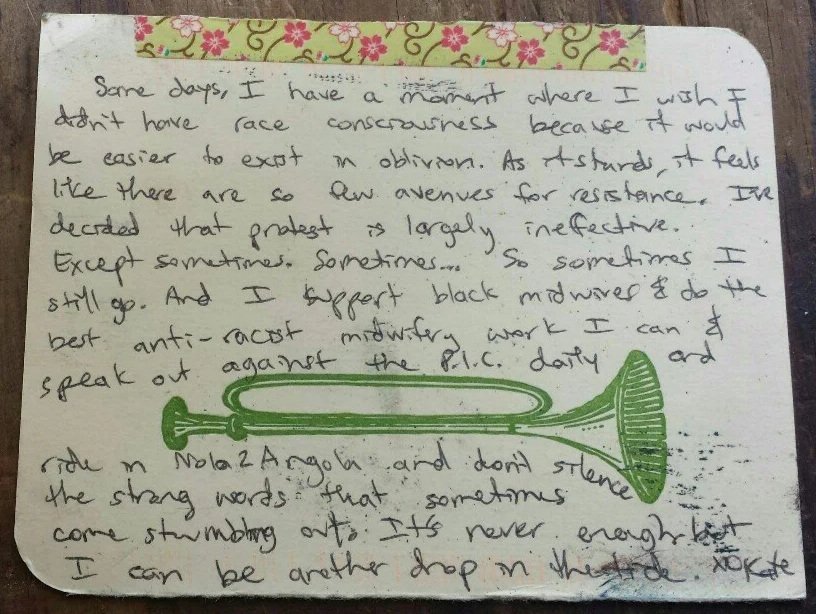 Some days, I have a moment where I wish I
didn't have race consciousness because it would
be easier to exist in oblivion. As it stands, it feels
like there are so few avenues for resistance. I've
decided that protest is largely ineffective.
Except sometimes. Sometimes... So sometimes I
still go. And I support black midwives & do the
best anti-racist midwifery work I can &
speak out against the P.I.C. daily and
ride in Nola2Angola and don't silence
the strong words that sometimes
come stumbling out. It's never enough but
I can be another drop in the tide. XO Kate